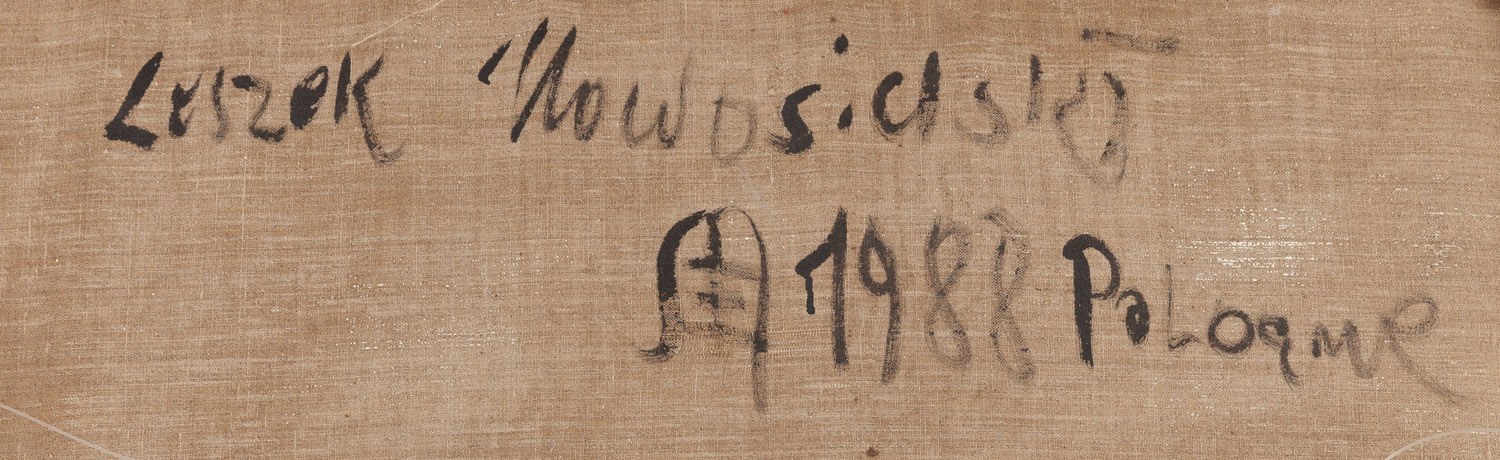 Leszek Nowosielski
1988 Pologne